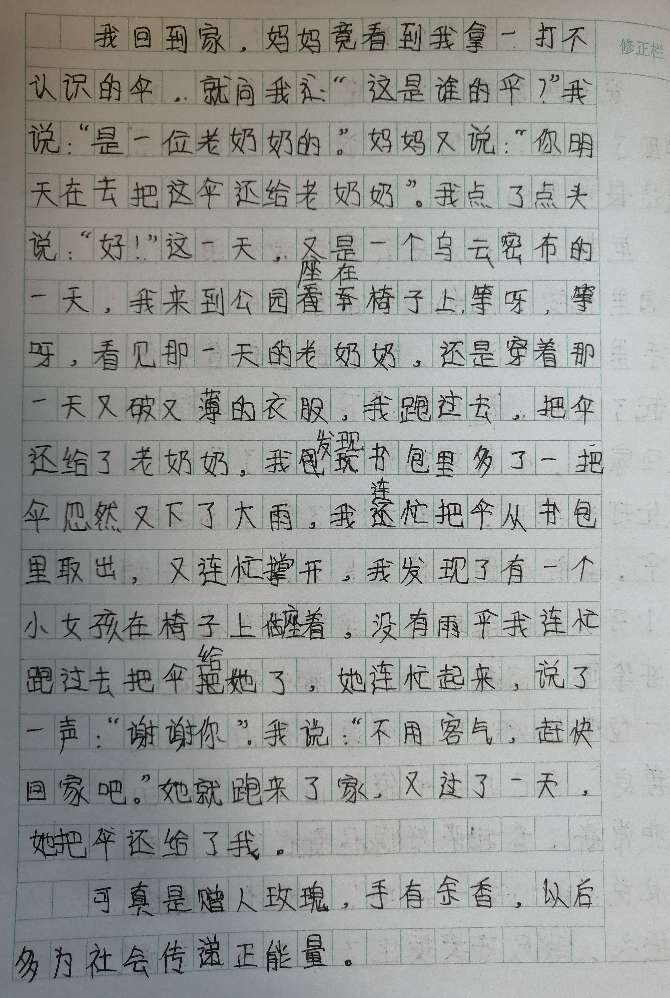 修正栏
我回到家，妈妈竟看到我拿一打不
认识的伞，就问我："这是谁的伞？"我
说："是一位老奶奶的。"妈妈又说："你明
天在去把这伞还给老奶奶"。我点了点头
说："好！"这一天，又是一个乌云密布的
一天，我来到公园座在椅子上，等呀，等
呀，看见那一天的老奶奶，还是穿着那
一天又破又薄的衣服，我跑过去，把伞
还给了老奶奶，我发现书包里多了一把
伞忽然又下了大雨，我连忙把伞从书包
里取出，又连忙撑开，我发现了有一个
小女孩在椅子上座着，没有雨伞我连忙
跑过去把伞给她了，她连忙起来，说了
一声："谢谢你"。我说："不用客气，赶快
回家吧。"她就跑来了家，又过了一天，
她把伞还给了我。
可真是赠人玫瑰，手有余香，以后
多为社会传递正能量。